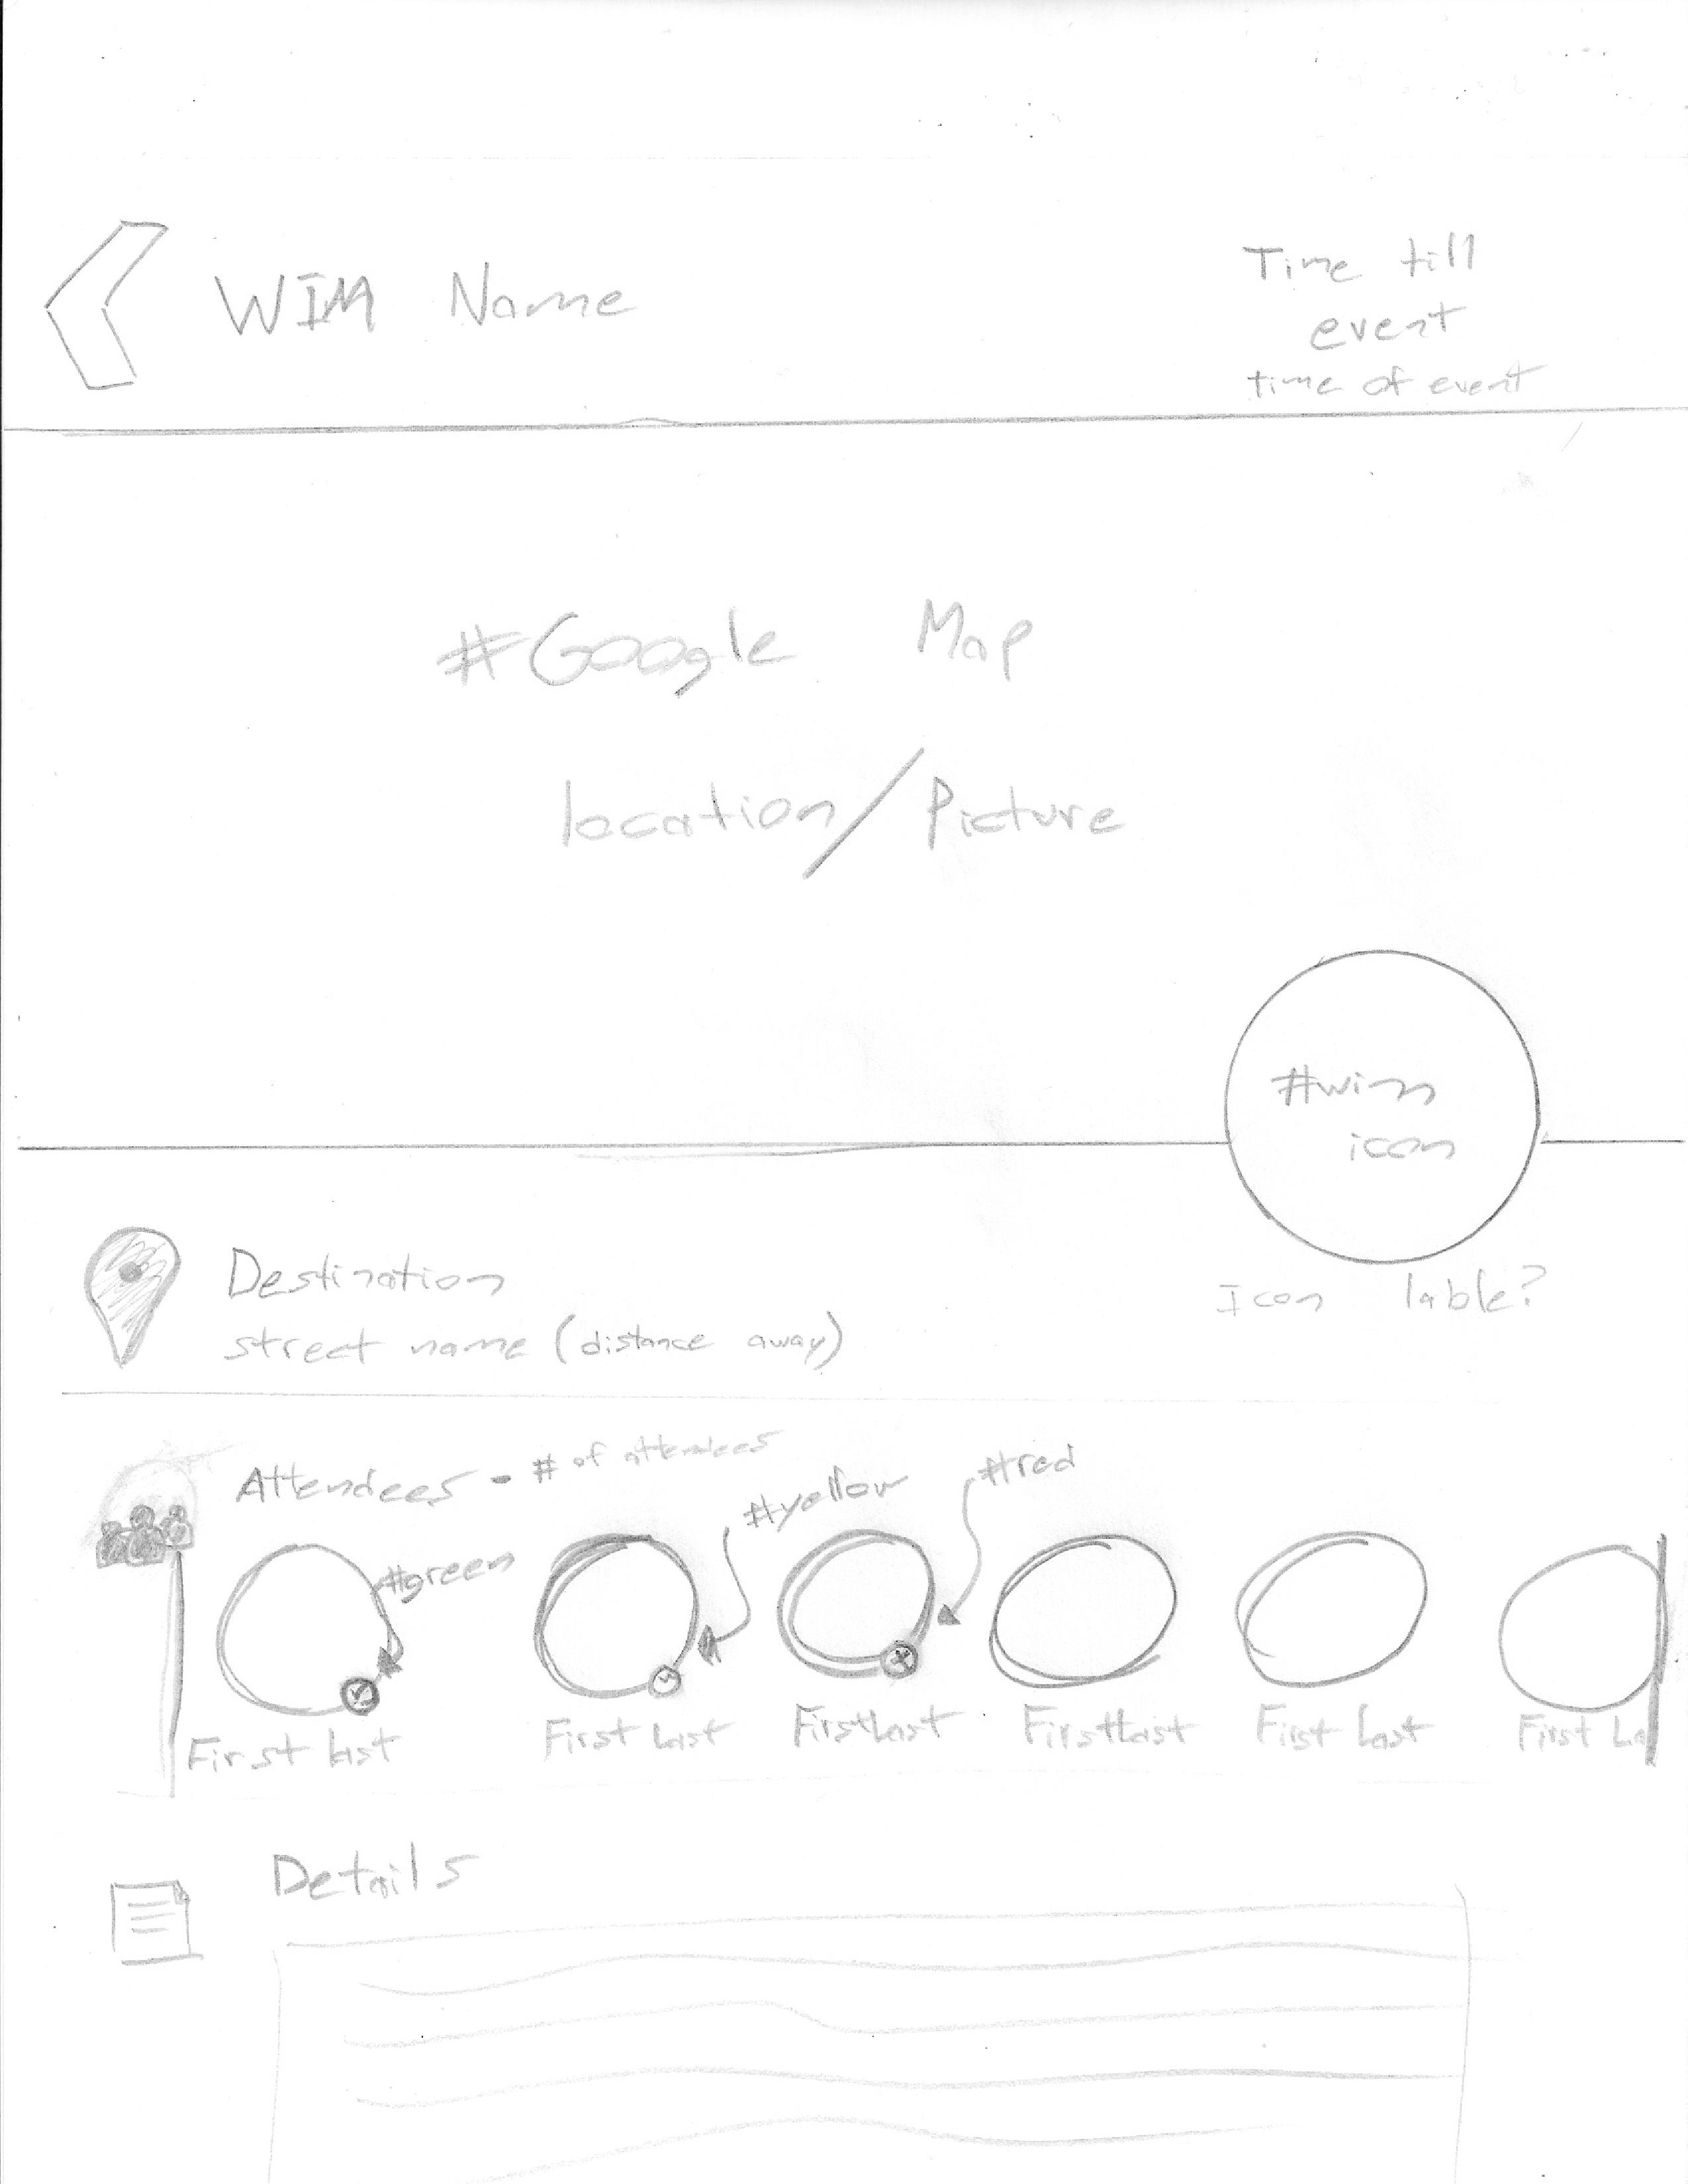 WIM Name
Time till
event
time of event
#Google Map
location/Picture
#wim
icon
Icon lable?
Destination
street name (distance away)
Attendees - # of attendees
#green
#yellow
#red
First last
First Last
First Last
First Last
First Last
First La
Details